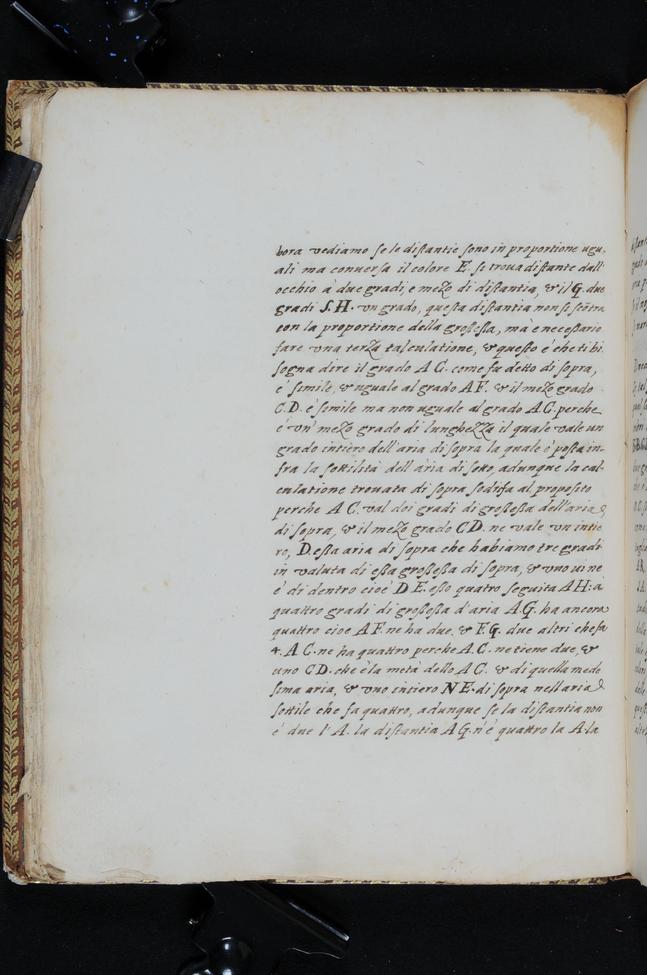 hora vediamo se le distantie sono in proportione ugu-
ali ma conversa il colore E. si trova distante dall'
occhio à due gradi, e mezo di distantia, & il G. due
gradi S. H. un grado, questa distantia non si scõtra
con la proportione della grossessa, ma e necessario
fare una terza calculatione, & questo é che ti bi
sogna dire il grado A C. come fu detto di sopra,
é simile, & uguale al grado A F. & il mezo grado
C. D. é simile ma non uguale al grado A C. perche
é un' mezo grado di lunghezza il quale vale un
grado intiero dell'aria di sopra la quale é posta in-
fra la sottilità dell aria di sotto, adunque la cal-
culatione trovata di sopra sodisfa al proposito
perche A C. val doi gradi di grossessa dell'aria
di sopra, & il mezo grado C D. ne vale un intie
ro, D. essa aria di sopra che habiamo tre gradi
in valuta di essa grossessa di sopra, & uno vi ne
é di dentro cioé D E. esso quatro seguita A H: à
quattro gradi di grossessa d'aria A. G. ha ancora
quattro cioe A F. ne ha due, & F. G. due altri che fa
4. A C. ne ha quattro perche A C. ne tiene due, &
uno C D. che é la metá dello A C. & di quella mede
sima aria, & uno intiero N E. di sopra nell aria
sottile che fa quattro, adunque se la distantia non
é due l' A. la distantia A G. n'é quattro la A. la